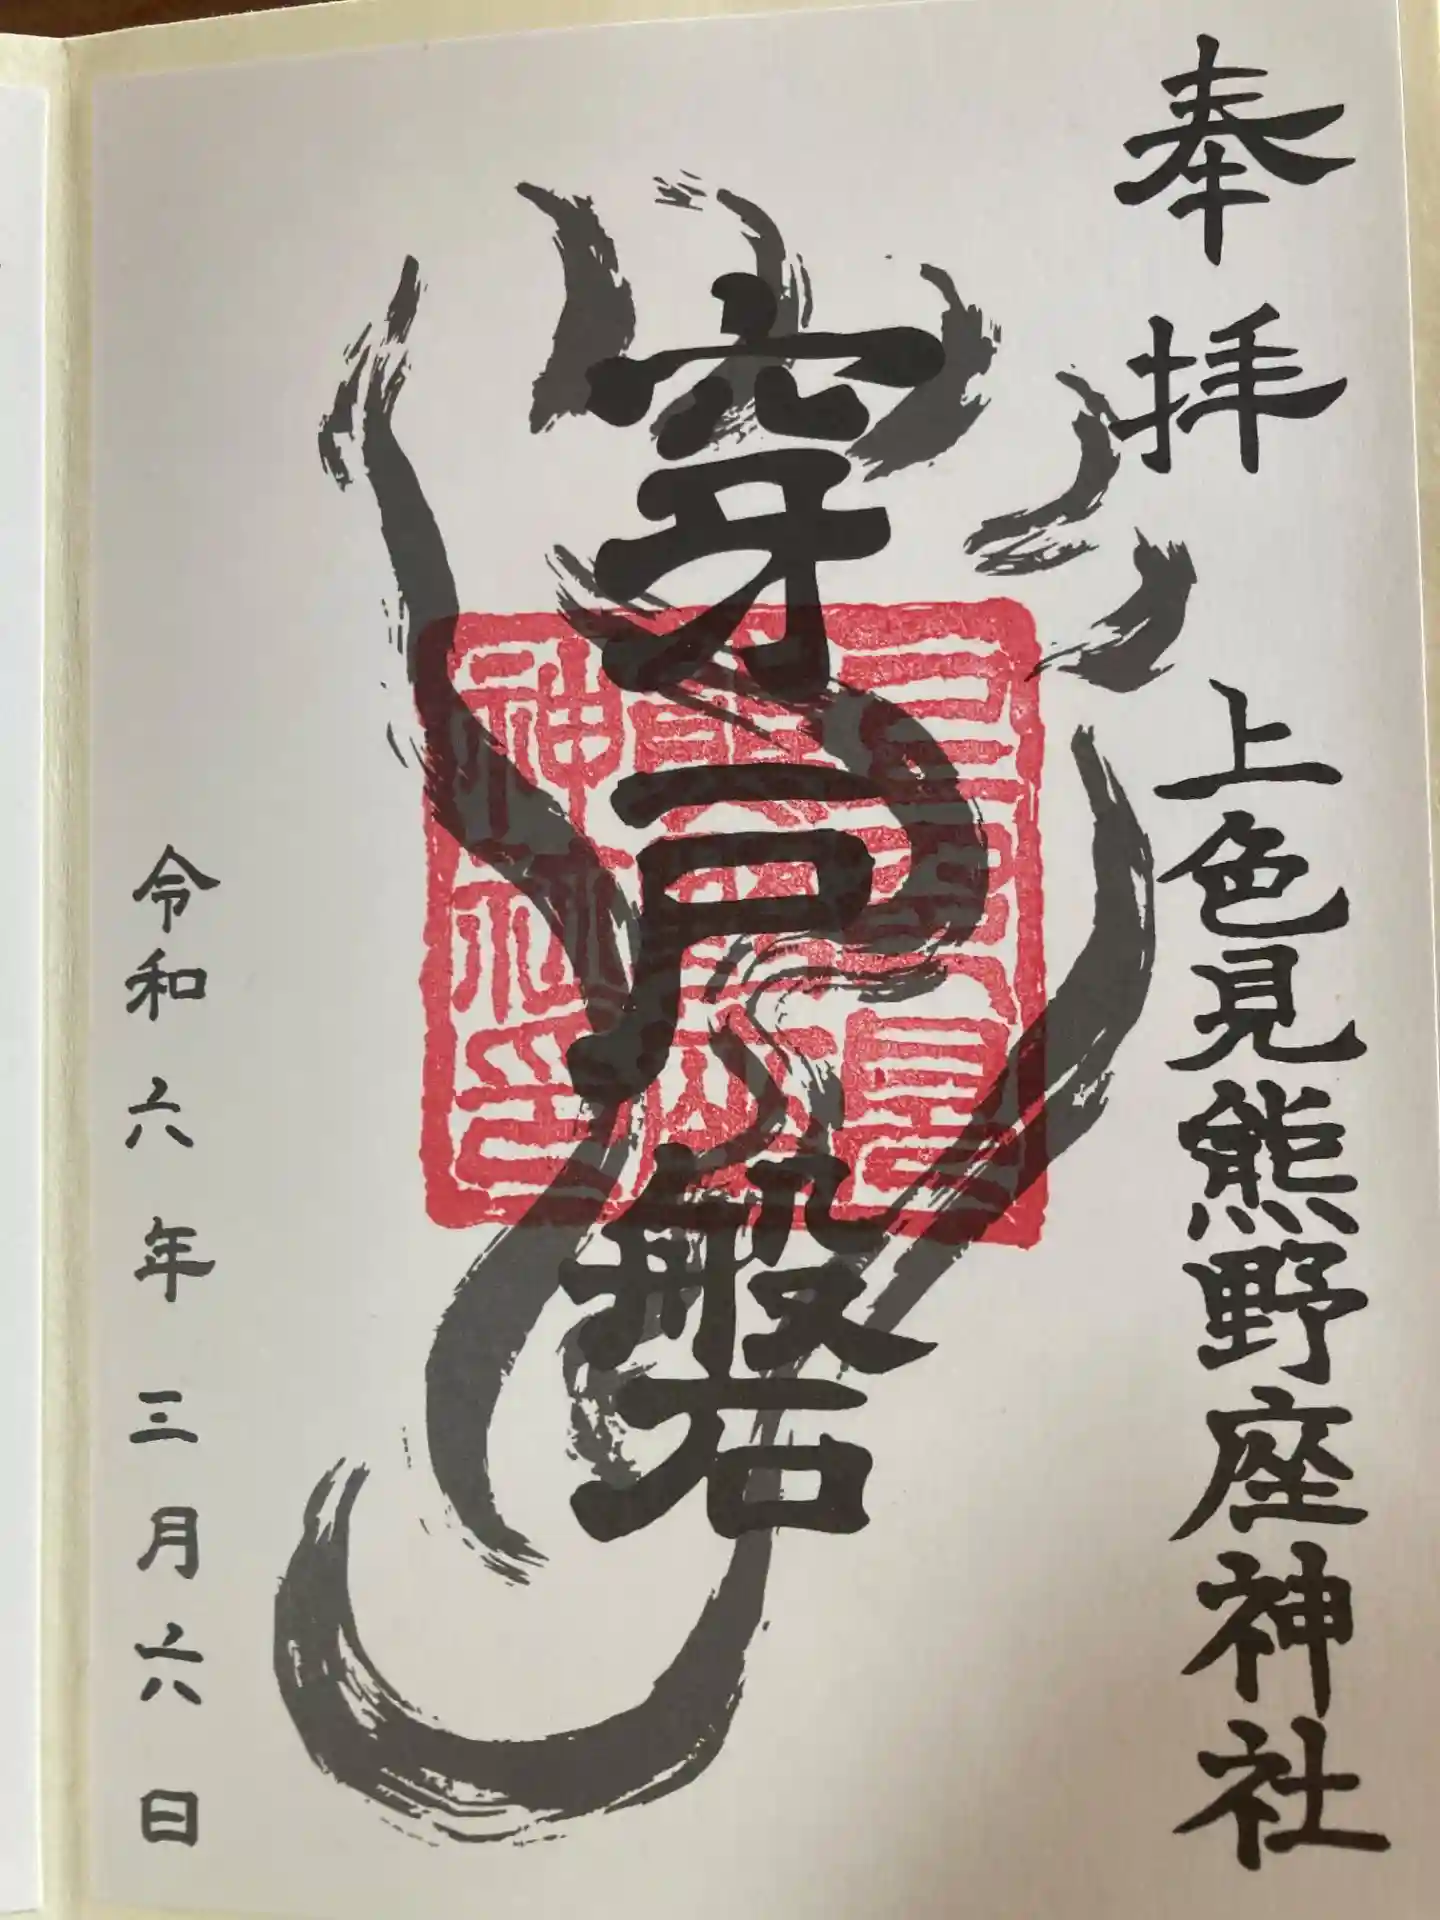 奉拝
上色見熊野座神社
穿戸磐石
令和六年三月六日